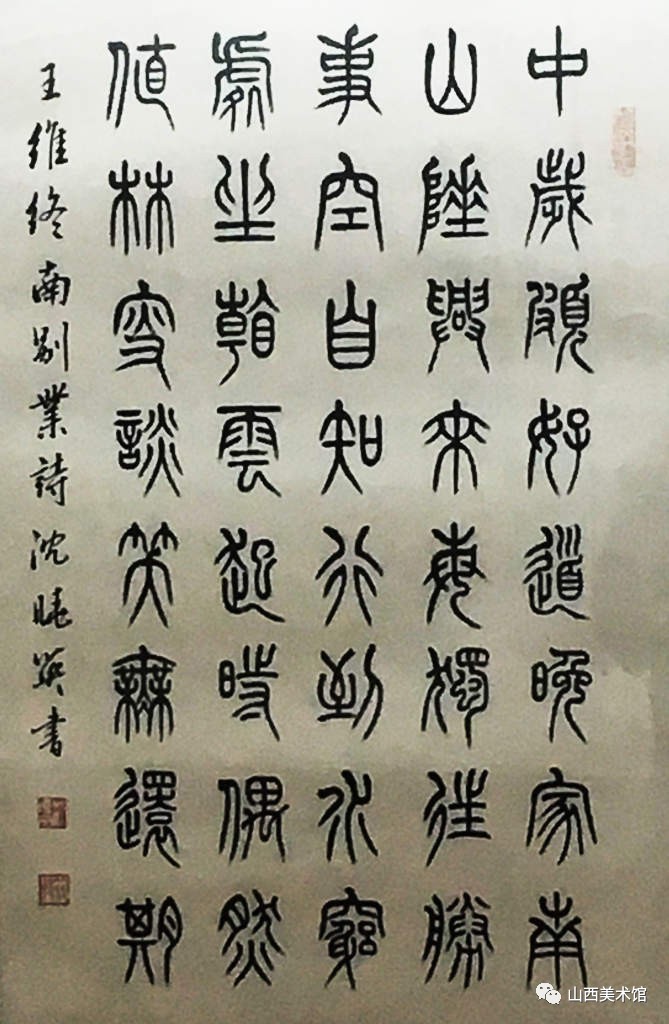 中歲頗好道晚家南
山陲興來每獨往勝
事空自知行到水窮
處坐看雲起時偶然
值林叟談笑無還期
王維終南别業詩沈晓英書
山西美术馆